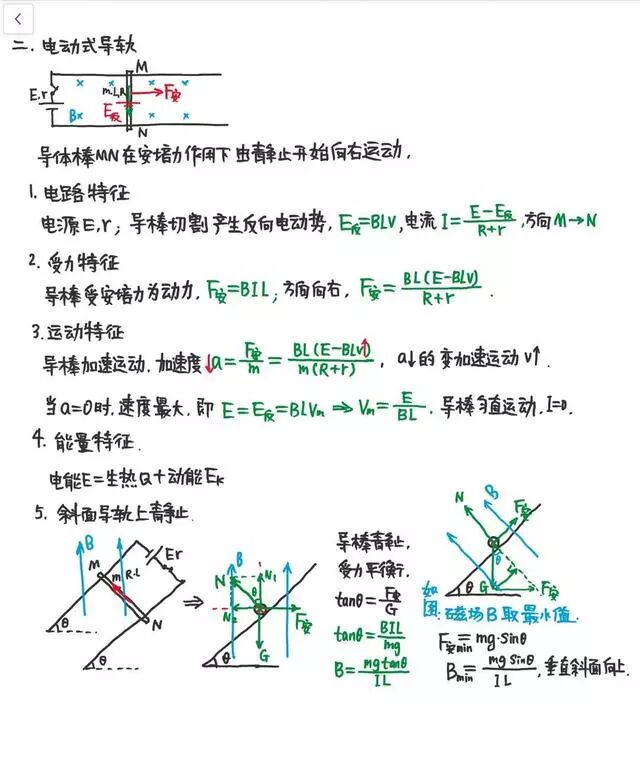 二. 电动式导轨
M
E.r
m.L.R
F安
B
E反
N
导体棒MN在安培力作用下由静止开始向右运动.
1. 电路特征
电源E,r; 导棒切割产生反向电动势, E反=BLV, 电流 I=(E-E反)/(R+r), 方向M→N
2. 受力特征
导棒受安培力为动力, F安=BIL; 方向向右, F安=BL(E-BLV)/(R+r).
3. 运动特征
导棒加速运动. 加速度↓a=F安/m=BL(E-BLV↑)/m(R+r), a↓的变加速运动v↑.
当a=0时, 速度最大, 即 E=E反=BLVm⇒Vm=E/BL. 导棒匀直运动, I=0.
4. 能量特征.
电能E=生热Q+动能EK
5. 斜面导轨上静止.
B
Er
M
m
R.L
N
θ
θ
⇒
B
N
N1
θ
N2
F安
G
θ
导棒静止,
受力平衡.
tanθ=F安/G
tanθ=BIL/mg
B=mgtanθ/IL
N
B
F安
θ
G
F安
θ
如图: 磁场B取最小值.
F安min=mg·sinθ
Bmin=mgsinθ/IL, 垂直斜面向上.